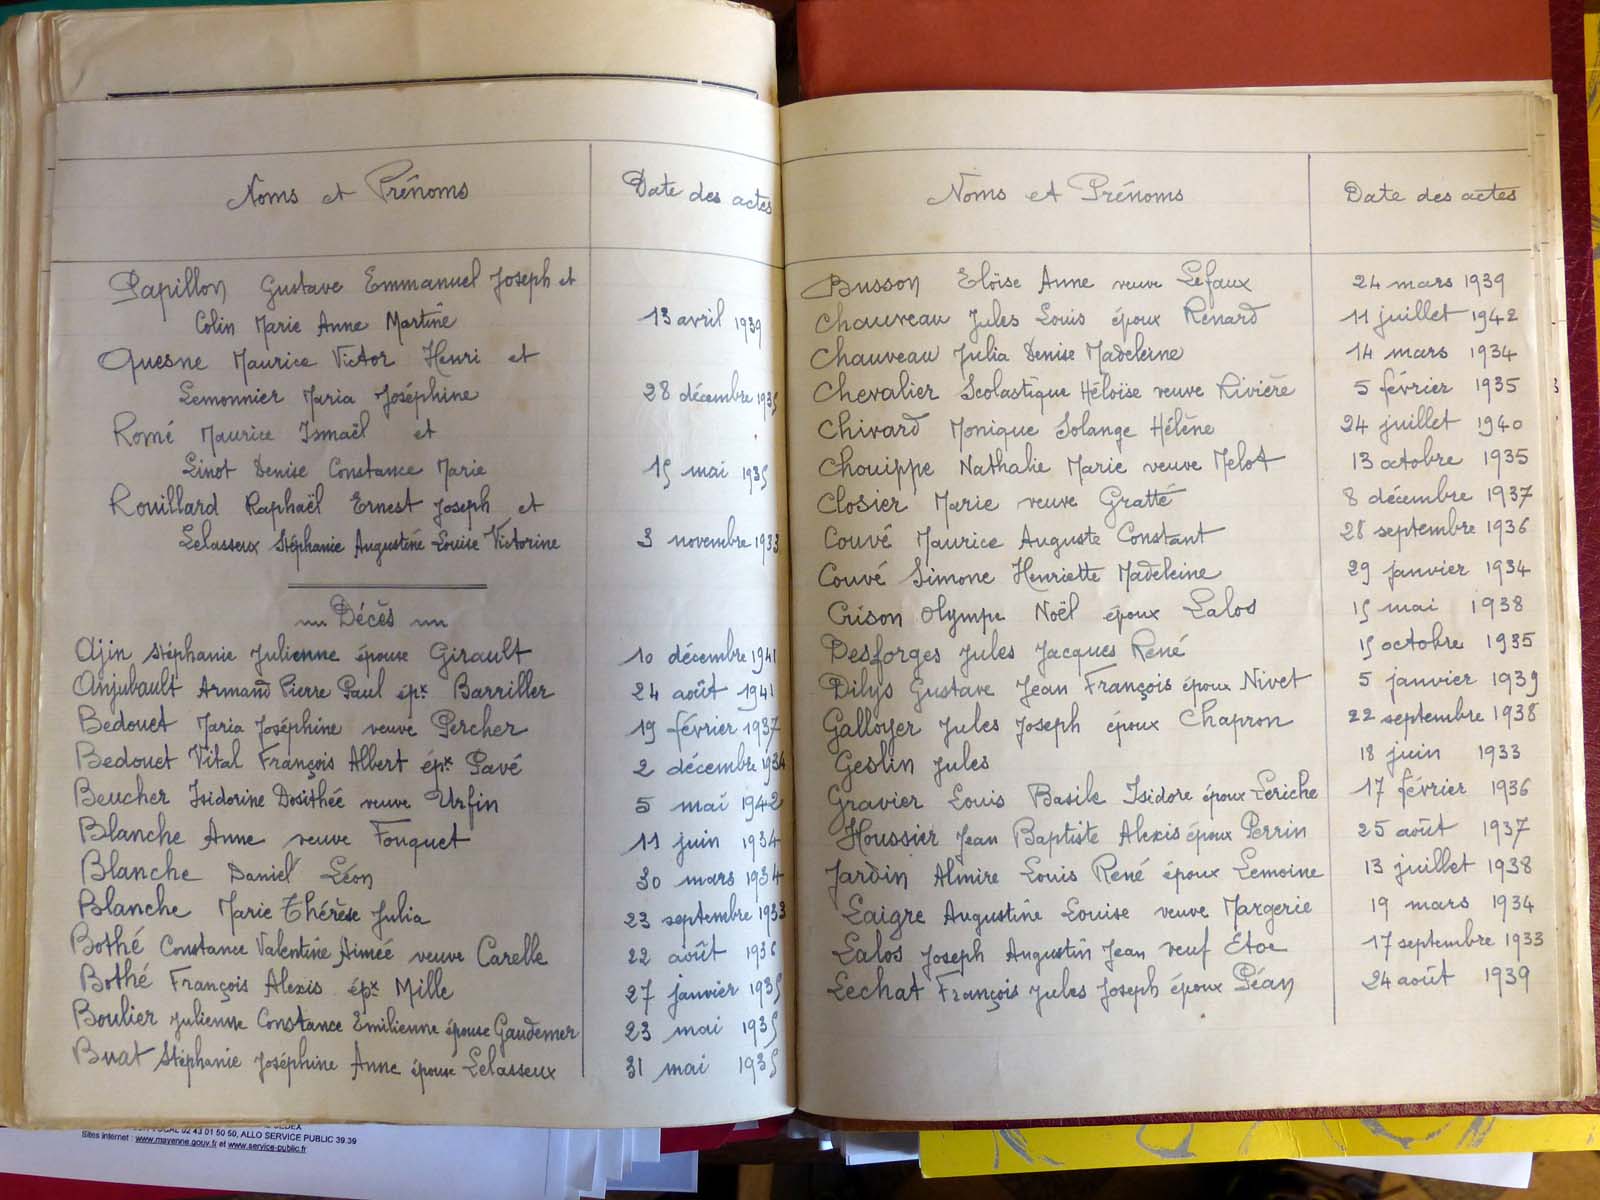 Noms et Prénoms Date des actes
Papillon Gustave Emmanuel Joseph et
Colin Marie Anne Martine 13 avril 1939
Quesne Maurice Victor Henri et
Lemonnier Maria Joséphine 28 décembre 1935
Romé Maurice Ismaël et
Linot Denise Constance Marie 15 mai 1935
Rouillard Raphaël Ernest Joseph et
Lelasseux Stéphanie Augustine Louise Victorine 3 novembre 1933
Décès
Ajin Stéphanie Julienne épouse Girault 10 décembre 1941
Anjubault Armand Pierre Paul épx Barriller 24 août 1941
Bedouet Maria Joséphine veuve Percher 19 février 1937
Bedouet Vital François Albert épx Pavé 2 décembre 1934
Beucher Isidorine Dosithée veuve Urfin 5 mai 1942
Blanche Anne veuve Fouquet 11 juin 1934
Blanche Daniel Léon 30 mars 1934
Blanche Marie Thérèse Julia 23 septembre 1933
Bothé Constance Valentine Aimée veuve Carelle 22 août 1936
Bothé François Alexis épx Mille 27 janvier 1935
Boulier Julienne Constance Emilienne épouse Gaudemer 23 mai 1935
Buat Stéphanie Joséphine Anne épouse Lelasseux 31 mai 1935
Noms et Prénoms Date des actes
Busson Eloïse Anne veuve Lefaux 24 mars 1939
Chauveau Jules Louis époux Renard 11 juillet 1942
Chauveau Julia Denise Madeleine 14 mars 1934
Chevalier Scolastique Héloïse veuve Rivière 5 février 1935
Chivard Monique Solange Hélène 24 juillet 1940
Chouippe Nathalie Marie veuve Melot 13 octobre 1935
Closier Marie veuve Gratté 8 décembre 1937
Couvé Maurice Auguste Constant 28 septembre 1936
Couvé Simone Henriette Madeleine 29 janvier 1934
Crison Olympe Noël époux Lalos 15 mai 1938
Desforges Jules Jacques René 15 octobre 1935
Dilys Gustave Jean François époux Nivet 5 janvier 1939
Galloyer Jules Joseph époux Chapron 22 septembre 1938
Geslin Jules 18 juin 1933
Gravier Louis Basile Isidore époux Leriche 17 février 1936
Houssier Jean Baptiste Alexis époux Perrin 25 août 1937
Jardin Almire Louis René époux Lemoine 13 juillet 1938
Laigre Augustine Louise veuve Margerie 19 mars 1934
Lalos Joseph Augustin Jean veuf Étoc 17 septembre 1933
Lechat François Jules Joseph époux Péan 24 août 1939
02 43 01 50 50, ALLO SERVICE PUBLIC 39.39
Sites internet : www.mayenne.gouv.fr et www.service-public.fr